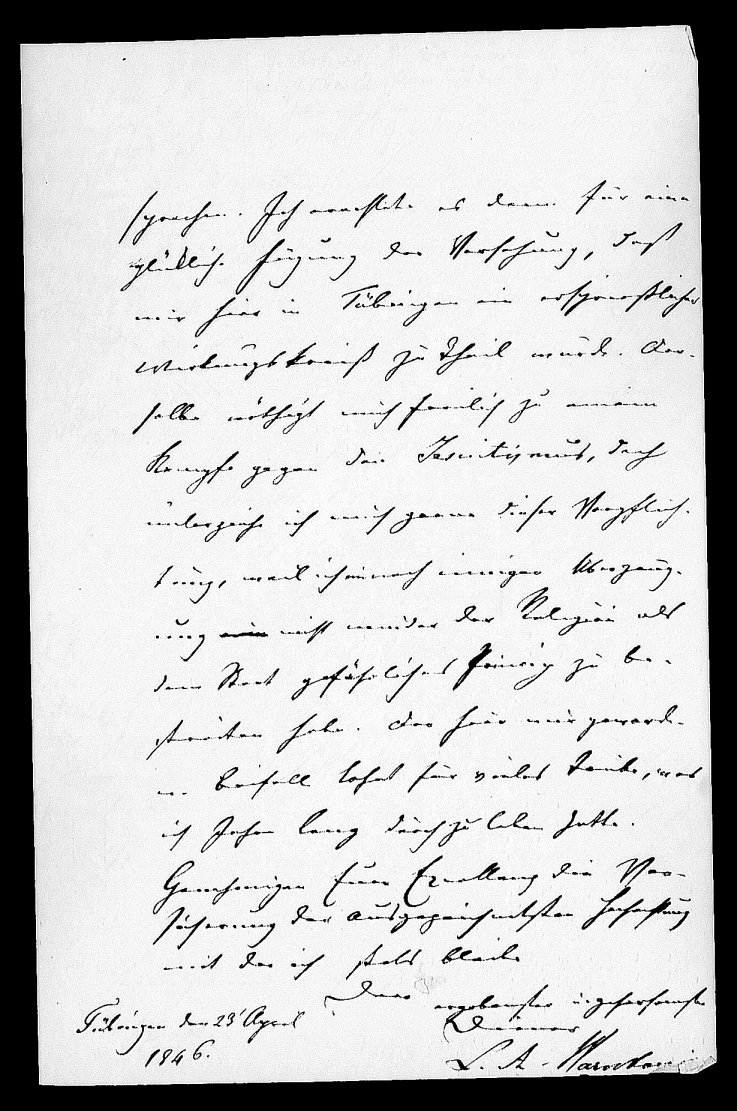 sprochen. Ich erachtete es denn für eine
glückliche Fügung der Vorsehung, daß
mir hier in Tübingen ein ersprießlicher
Wirkungskreiß zu Theil wurde. Der-
selbe nöthigt mich freilich zu einem
Kampfe gegen den Jesuitismus, doch
unterziehe ich mich gerne dieser Verpflich-
tung, weil ich nach inniger Überzeug-
ung nicht minder der Religion als
dem Staat gefährliches Princip zu be-
streiten habe. Der hier mir geword-
ne Beifall lohnt für vieles Trübe, was
ich Jahre lang durchzuleben hatte.
Genehmigen Euer Exzellenz die Ver-
sicherung der ausgezeichnetsten Hochachtung
mit der ich stets bleibe
Dero ergebenster u gehorsamster
Diener
Tübingen den 23 April
1846.
L. A. Warnkönig